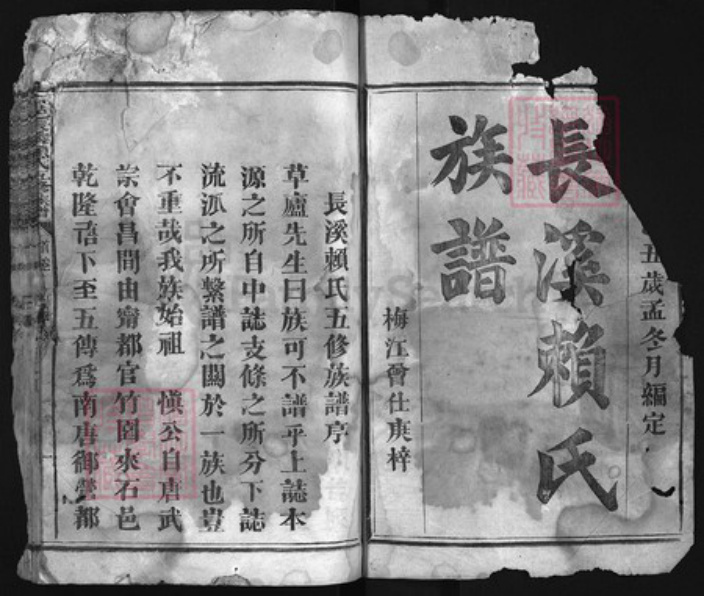 五歲孟冬月編定
長溪賴氏
族譜
梅江曾仕庚梓
長溪賴氏五修族譜序
草廬先生曰族可不譜乎上誌本
源之所自中誌支條之所分下誌
流泒之所繫譜之關於一族也豈
不重哉我族始祖 慎公自唐武
宗會昌間由寧都官竹園來石邑
乾隆禧下至五傳爲南唐御營都